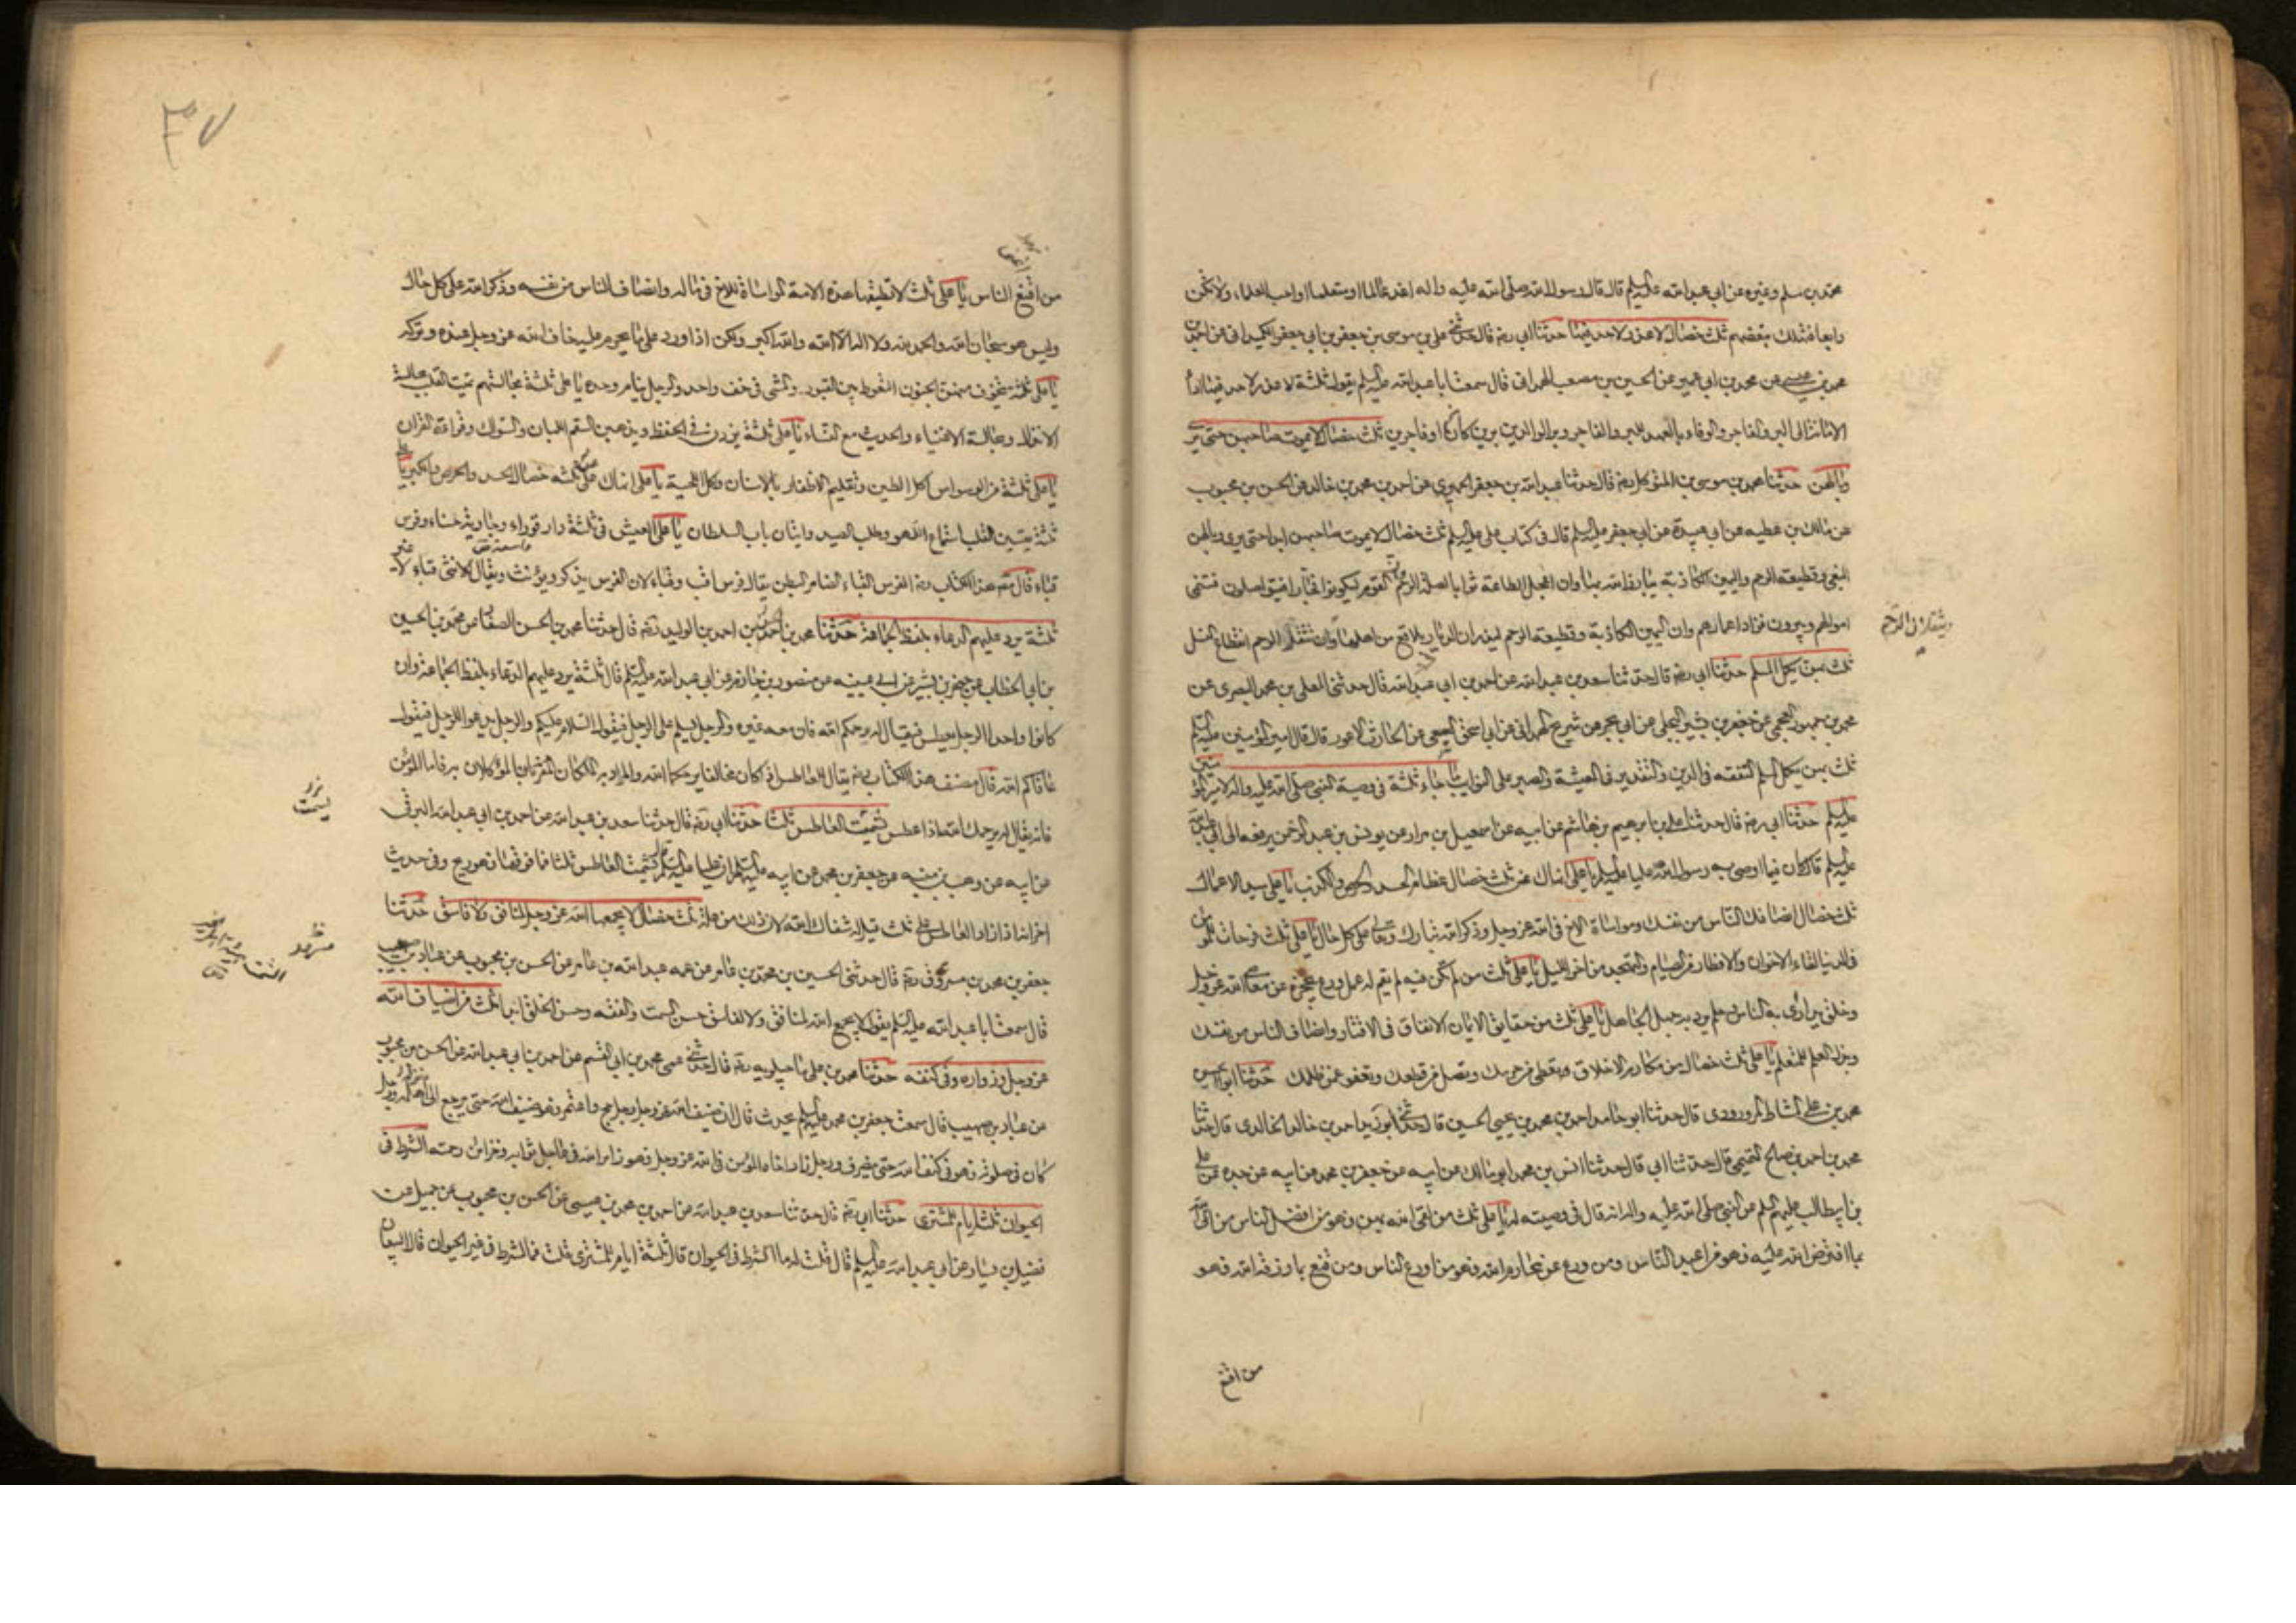 محمد بن مسلم وغيره عن ابي عبد الله عليه السلم قال قال رسول الله صلى الله عليه واله اغد عالما او متعلما او احب العلماء ولا تكن
رابعا فتهلك ببغضهم ثلث خصال لا عذر لاحد فيها حدثنا ابي ره قال حدثني علي بن موسى بن جعفر بن ابي جعفر الكميداني عن احمد بن
محمد بن عيسى عن محمد بن ابي عمير عن الحسين بن مصعب الهمداني قال سمعت ابا عبد الله عليه السلم يقول ثلثة لا عذر لاحد فيها اداء
الامانة الى البر والفاجر والوفاء بالعهد للبر والفاجر وبر الوالدين برين كانا او فاجرين ثلث خصال لا يموت صاحبهن حتى يرى
وبالهن حدثنا محمد بن موسى بن المتوكل ره قال حدثنا عبد الله بن جعفر الحميري عن احمد بن محمد بن خالد عن الحسن بن محبوب
عن مالك بن عطيه عن ابي عبيدة عن ابي جعفر عليه السلم قال في كتاب علي عليه السلم ثلث خصال لا يموت صاحبهن ابدا حتى يرى وبالهن
البغي وقطيعة الرحم واليمين الكاذبة يبارز الله بها وان اعجل الطاعة ثوابا لصلة الرحم وان القوم ليكونوا فجارا فيتواصلون فتنمى
اموالهم ويبرون فتزاد اعمارهم وان اليمين الكاذبة وقطيعة الرحم ليذران الديار بلاقع من اهلها وان تنقل الرحم انقطاع النسل
ويثقلان الرحم
ثلث بهن يكمل المسلم حدثنا ابي ره قال حدثنا سعد بن عبد الله عن احمد بن ابي عبد الله قال حدثني المعلى بن محمد البصري عن
محمد بن جمهور العمي عن جعفر بن بشير البجلي عن ابي بحر عن شريح الهمداني عن ابي اسحق السبيعي عن الحارث الاعور قال قال امير المؤمنين عليه السلم
ثلث بهن يكمل المسلم التفقه في الدين والتقدير في المعيشة والصبر على النوايب ما جاء ثلثة في وصية النبي صلى الله عليه واله لامير المؤمنين
عليه السلم حدثنا ابي ره قال حدثنا علي بن ابرهيم بن هاشم عن ابيه عن اسمعيل بن مرار عن يونس بن عبد الرحمن يرفعه الى ابي عبد الله
عليه السلم قال كان فيما اوصى به رسول الله عليا عليه السلم يا علي انهاك عن ثلث خصال عظام الحسد والحرص والكذب يا علي سيد الاعمال
ثلث خصال انصافك الناس من نفسك ومواساة الاخ في الله عز وجل وذكر الله تبارك وتعالى على كل حال يا علي ثلث فرحات للمؤمن
في الدنيا لقاء الاخوان والافطار من الصيام والتهجد من اخر الليل يا علي ثلث من لم تكن فيه لم يقم له عمل ورع يحجزه عن معاصي الله عز وجل
وخلق يدارى به الناس وحلم يرد به جهل الجاهل يا علي ثلث من حقايق الايمان الانفاق في الاقتار وانصاف الناس من نفسك
وبذل العلم للمتعلم يا علي ثلث خصال من مكارم الاخلاق تعطى من حرمك وتصل من قطعك وتعفو عمن ظلمك حدثنا ابو الحسين
محمد بن علي الشاه المرورودي قال حدثنا ابو حامد احمد بن محمد بن الحسين قال حدثنا ابو يزيد احمد بن خالد الخالدي قال حدثنا
محمد بن احمد بن صالح التميمي قال حدثنا ابي قال حدثنا انس بن محمد ابو مالك عن ابيه عن جعفر بن محمد عن ابيه عن جده عن علي
بن ابيطالب عليهم السلم عن النبي صلى الله عليه واله انه قال في وصيته له يا علي ثلث من لقى الله بهن فهو من افضل الناس من اتى الله
بما افترض الله عليه فهو من اعبد الناس ومن ورع عن محارم الله فهو من اورع الناس ومن قنع بما رزقه الله فهو
من اقنع
٣٠٧
من اقنع الناس يا علي ثلث لا تطيقها هذه الامة المواساة للاخ في ماله وانصاف الناس من نفسه وذكر الله على كل حال
وليس هو سبحان الله والحمد لله ولا اله الا الله والله اكبر ولكن اذا ورد على ما يحرم عليه خاف الله عز وجل عنده وتركه
يا علي ثلثة يتخوف منهن الجنون التغوط بين القبور والمشى في خف واحد والرجل ينام وحده يا علي ثلثة مجالستهم تميت القلب مجالسة
الانذال ومجالسة الاغنياء والحديث مع النساء يا علي ثلثة يزدن في الحفظ ويذهبن السقم اللبان والسواك وقراءة القران
يا علي ثلثة من الوسواس اكل الطين وتقليم الاظفار بالاسنان واكل اللحية يا علي انهاك عن ثلثه خصال الحسد والحرص والكبر يا علي
ثلثة يقسين القلب استماع اللهو وطلب الصيد واتيان باب السلطان يا علي العيش في ثلثة دار قوراء وجارية حسناء وفرس
قباء قال مصنف هذا الكتاب ره الفرس القباء الضامر البطن يقال فرس اقب وقباء لان الفرس يذكر ويؤنث ويقال للانثى قباء لا غير
ثلثة يرد عليهم الدعاء بلفظ الجماعة حدثنا محمد بن الحسن بن احمد بن الوليد ره قال حدثنا محمد بن الحسن الصفار عن محمد بن الحسين
بن ابي الخطاب عن جعفر بن بشير عن ابي عيينه عن منصور بن حازم عن ابي عبد الله عليه السلم قال ثلثة يرد عليهم الدعاء بلفظ الجماعة وان
كانوا واحدا الرجل يعطس فيقال له يرحمكم الله فان معه غيره والرجل يسلم على الرجل فيقول السلام عليكم والرجل يدعو للرجل فيقول
عافاكم الله قال مصنف هذا الكتاب ره يقال للعاطس اذا كان مخالفا يرحمكما الله والمراد به الملكان الموكلان به فاما المؤمن
فانه يقال له يرحمك الله اذا عطس تسميت العاطس ثلثا حدثنا ابي ره قال حدثنا سعد بن عبد الله عن احمد بن ابي عبد الله البرقي
عن ابيه عن وهب بن منبه عن جعفر بن محمد عن ابيه عليهما السلم ان عليا عليه السلم قال يسمت العاطس ثلثا فما فوقها فهو ريح وفي حديث
اخر انه اذا زاد العاطس على ثلث قيل له شفاك الله لان ذلك من علة ثلث خصال لا يجمعها الله عز وجل لمنافق ولا فاسق حدثنا
جعفر بن محمد بن مسرور ره قال حدثني الحسين بن محمد بن عامر عن عمه عبد الله بن عامر عن الحسن بن محبوب عن عباد بن صهيب
قال سمعت ابا عبد الله عليه السلم يقول لا يجمع الله لمنافق ولا لفاسق حسن السمت والفقه وحسن الخلق ابدا ثلث من اضياف الله
عز وجل وزواره وفي كنفه حدثنا محمد بن علي ماجيلويه ره قال حدثني عمي محمد بن ابي القسم عن احمد بن ابي عبد الله عن الحسن بن محبوب
عن عباد بن صهيب قال سمعت جعفر بن محمد عليه السلم يحدث قال ان ضيف الله عز وجل رجل حج واعتمر فهو ضيف الله حتى يرجع الى منزله ورجل
كان في صلوته فهو في كنف الله حتى ينصرف ورجل زار اخاه المؤمن في الله عز وجل فهو زاير الله في عاجل ثوابه وخزائن رحمته الشرط في
الحيوان ثلثة ايام للمشتري حدثنا ابي ره قال حدثنا سعد بن عبد الله عن احمد بن محمد بن عيسى عن الحسن بن محبوب عن جميل عن
فضيل بن يسار عن ابي عبد الله عليه السلم قال قلت له ما الشرط في الحيوان قال ثلثة ايام للمشتري قلت فما الشرط في غير الحيوان قال البيعان